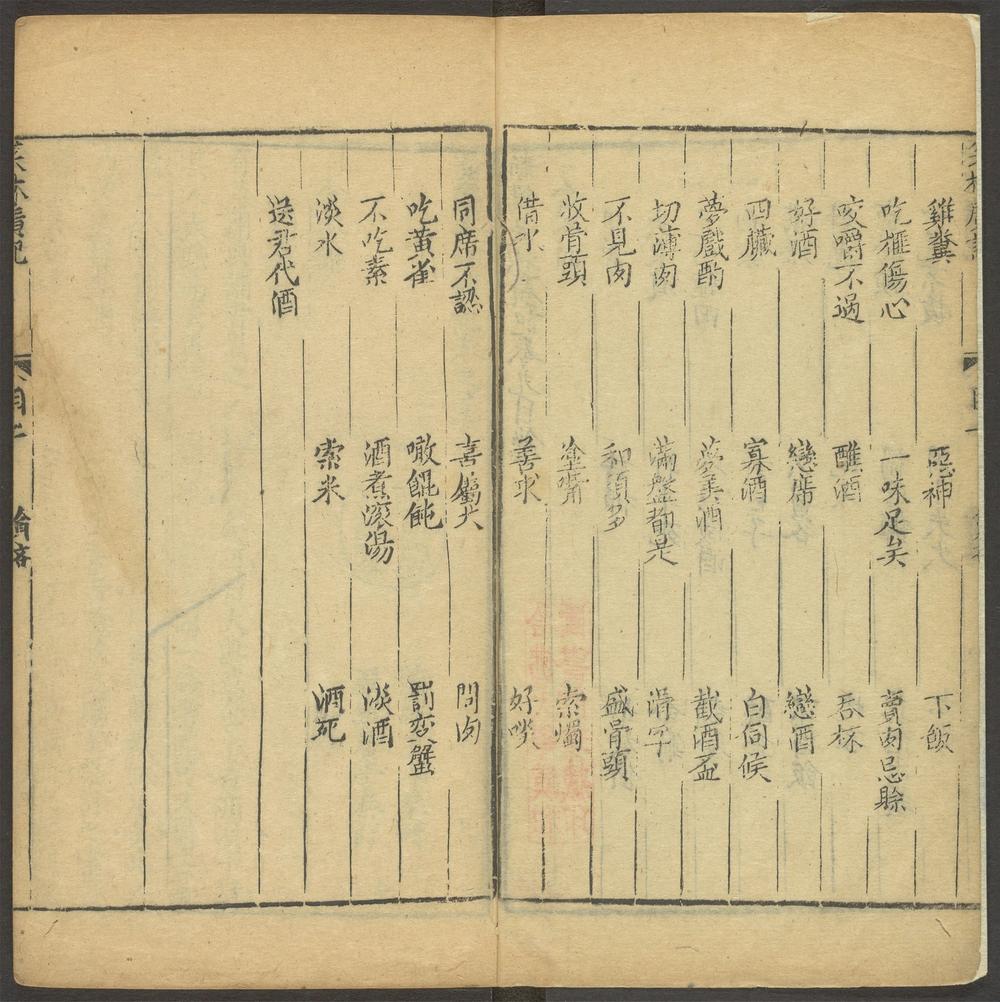 雞糞　惡神　下飯
吃榧傷心　一味足矣　賣肉忌賖
咬嚼不過　醮酒　吞杯
好酒　戀席　戀酒
四臟　寡酒　白伺候
夢戲酌　夢美酒　截酒盃
切薄肉　滿盤都是　滑字
不見肉　和頭多　盛骨頭
收骨頭　塗嘴　索燭
借水　善求　好啖
同席不認　喜屬犬　問肉
吃黄雀　噉餛飩　罰变蟹
不吃素　酒煮滚湯　淡酒
淡水　索米　酒死
送君代酒
笑林廣記　目　二